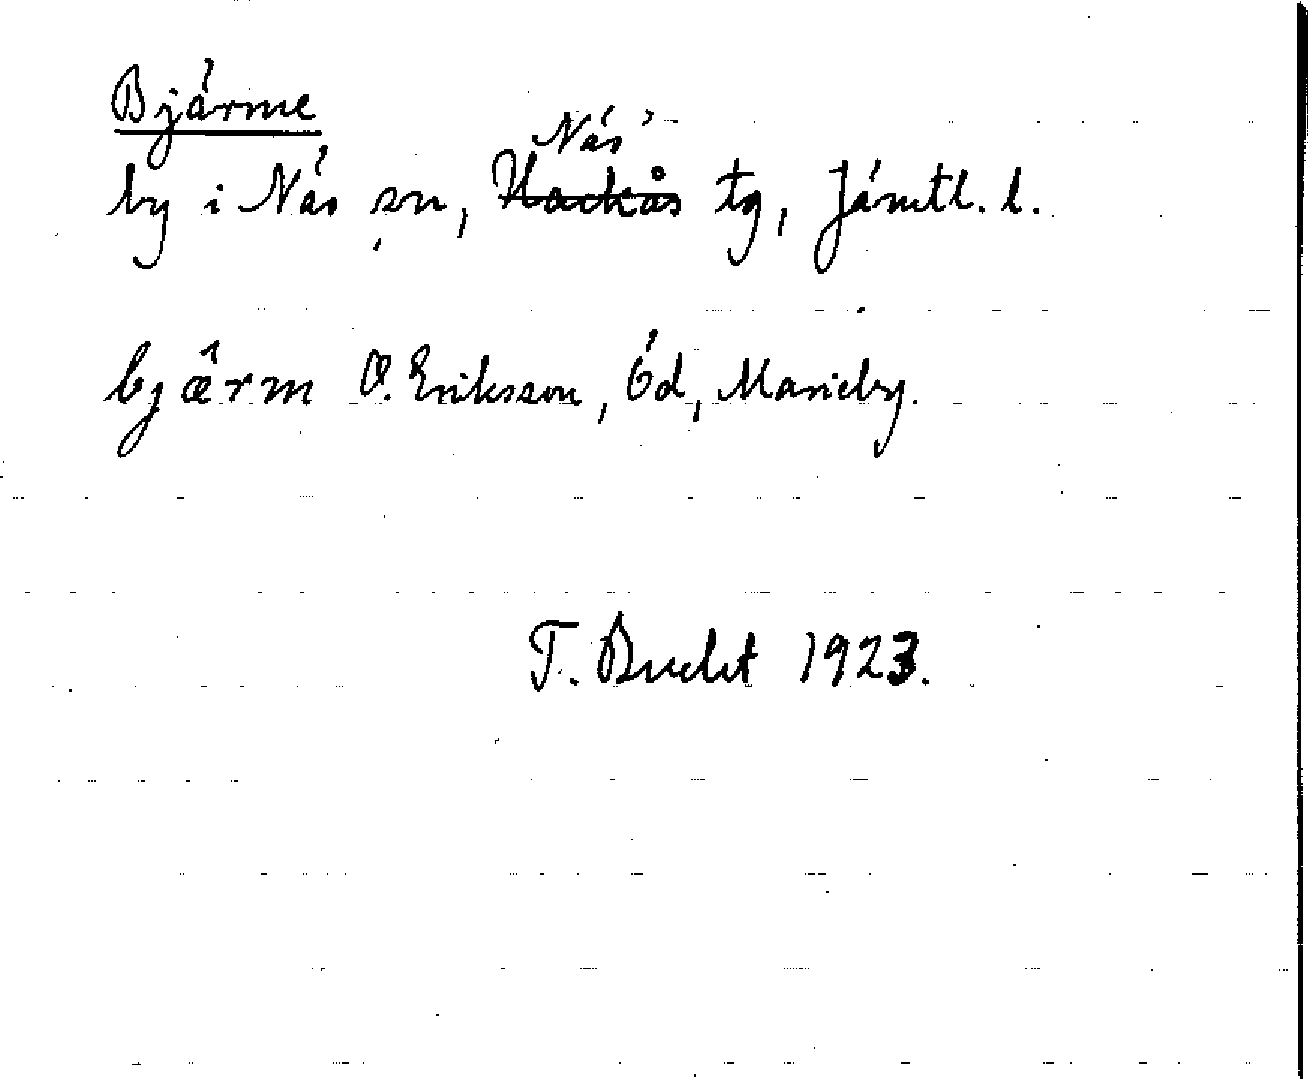 Bjärme
Näs
by i Näs sn, Hackås tg, Jämtl. l.
bjærm O. Eriksson, Öd, Marieby.
T. Bucht 1923.